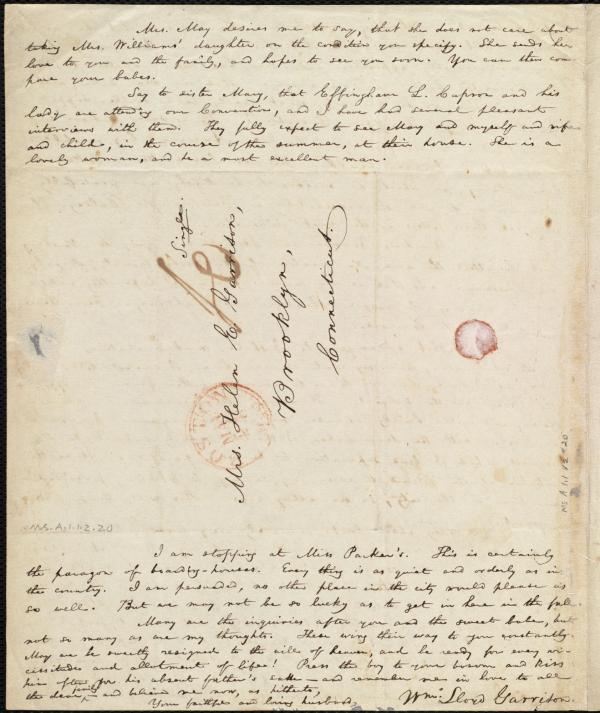 Mrs. May desires me to say, that she does not care about
taking Mrs. Williams' daughter on the condition you specify. She sends her
love to you and the family, and hopes to see you soon. You can then com-
pare your babes.
Say to sister Mary, that Effingham L. Capron and his
lady are attending our Convention, and I have had several pleasant
interviews with them. They fully expect to see Mary and myself and wife
and child, in the course of the summer, at their house. She is a
lovely woman, and he a most excellent man.
Single.
Mrs. Helen E. Garrison,
Brooklyn,
Connecticut.
BOSTON
MS. A. 1. 1. v. 2. 20
Ms. A. 1. 1. 2. 20
I am stopping at Miss Parker's. This is certainly
the paragon of boarding-houses. Every thing is as quiet and orderly as in
the country. I am persuaded, no other place in the city would please us
so well. But we may not be so lucky as to get in here in the fall.
Many are the inquiries after you and the sweet babe, but
not so many as are my thoughts. These wing their way to you constantly.
May we be sweetly resigned to the will of heaven, and be ready for every vi-
cissitude and allotment of life! Press the boy to your bosom and kiss
him often for his absent father's sake — and remember me in love to all
the dear family — and believe me now, as hitherto,
Your faithful and loving husband,
Wm. Lloyd Garrison.